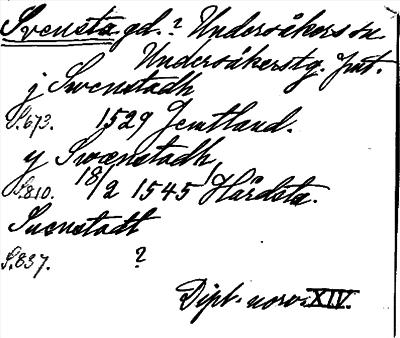 Svensta gd.? Undersåkers sn.
Undersåkers tg. Jmt.
j Swenstadh
S.673. 1529 Jemtland.
y Swenstadh
S.810. 18/2 1545 Hårdsta.
Suenstadt
S.837. ?
Dipl. norv. XIV.